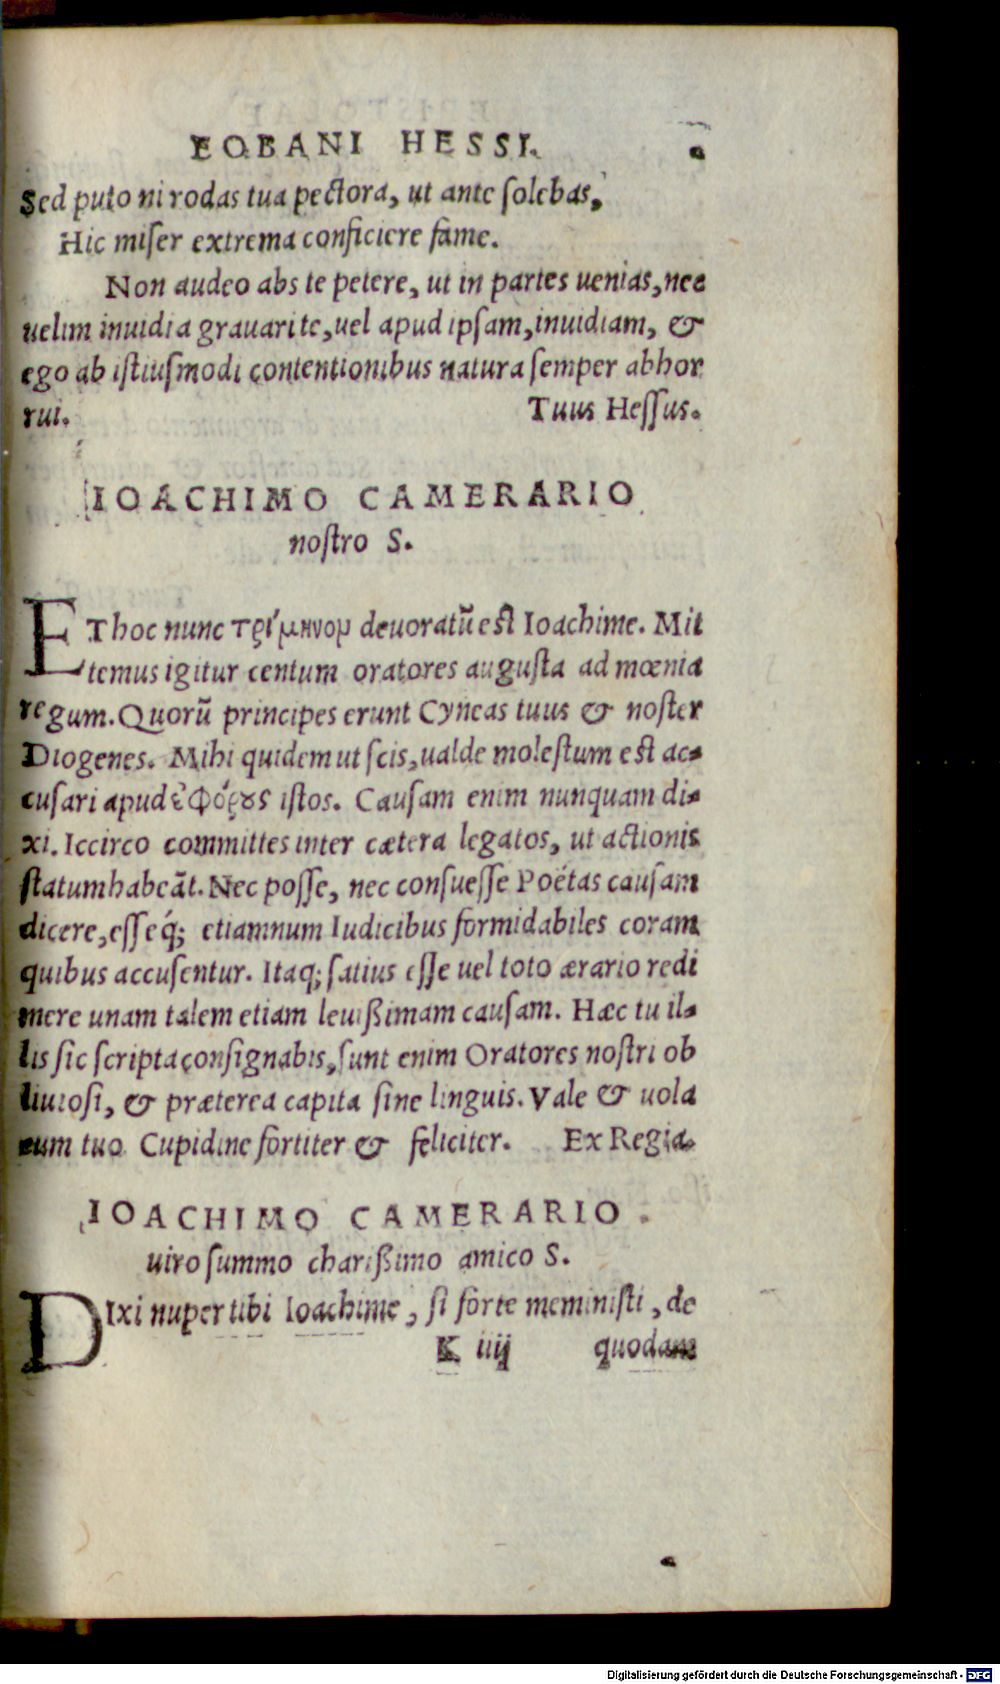 EOBANI HESSI.
Sed puto ni rodas tua pectora, ut ante ſolebas,
Hic miſer extrema conficiere fame.
Non audeo abs te petere, ut in partes uenias, nec
uelim inuidia grauari te, uel apud ipſam, inuidiam, &
ego ab iſtiuſmodi contentionibus natura ſemper abhor
rui. Tuus Heſſus.
IOACHIMO CAMERARIO
noſtro S.
ET hoc nunc τρίμηνον deuoratū eſt Ioachime. Mit
temus igitur centum oratores auguſta ad mœnia
regum. Quorū principes erunt Cyneas tuus & noſter
Diogenes. Mihi quidem ut ſcis, ualde moleſtum eſt ac-
cuſari apud ἐφόρȣς iſtos. Cauſam enim nunquam di-
xi. Iccirco committes inter cætera legatos, ut actionis
ſtatum habeāt. Nec poſſe, nec conſueſſe Poëtas cauſam
dicere, eſſeq́; etiamnum Iudicibus formidabiles coram
quibus accuſentur. Itaq; ſatius eſſe uel toto ærario redi
mere unam talem etiam leuißimam cauſam. Hæc tu il-
lis ſic ſcripta conſignabis, ſunt enim Oratores noſtri ob
liuioſi, & præterea capita ſine linguis. Vale & uola
cum tuo Cupidine fortiter & feliciter. Ex Regia.
IOACHIMO CAMERARIO
uiro ſummo charißimo amico S.
DIxi nuper tibi Ioachime, ſi forte meminiſti, de
K iiij quodam
Digitalisierung gefördert durch die Deutsche Forschungsgemeinschaft - DFG